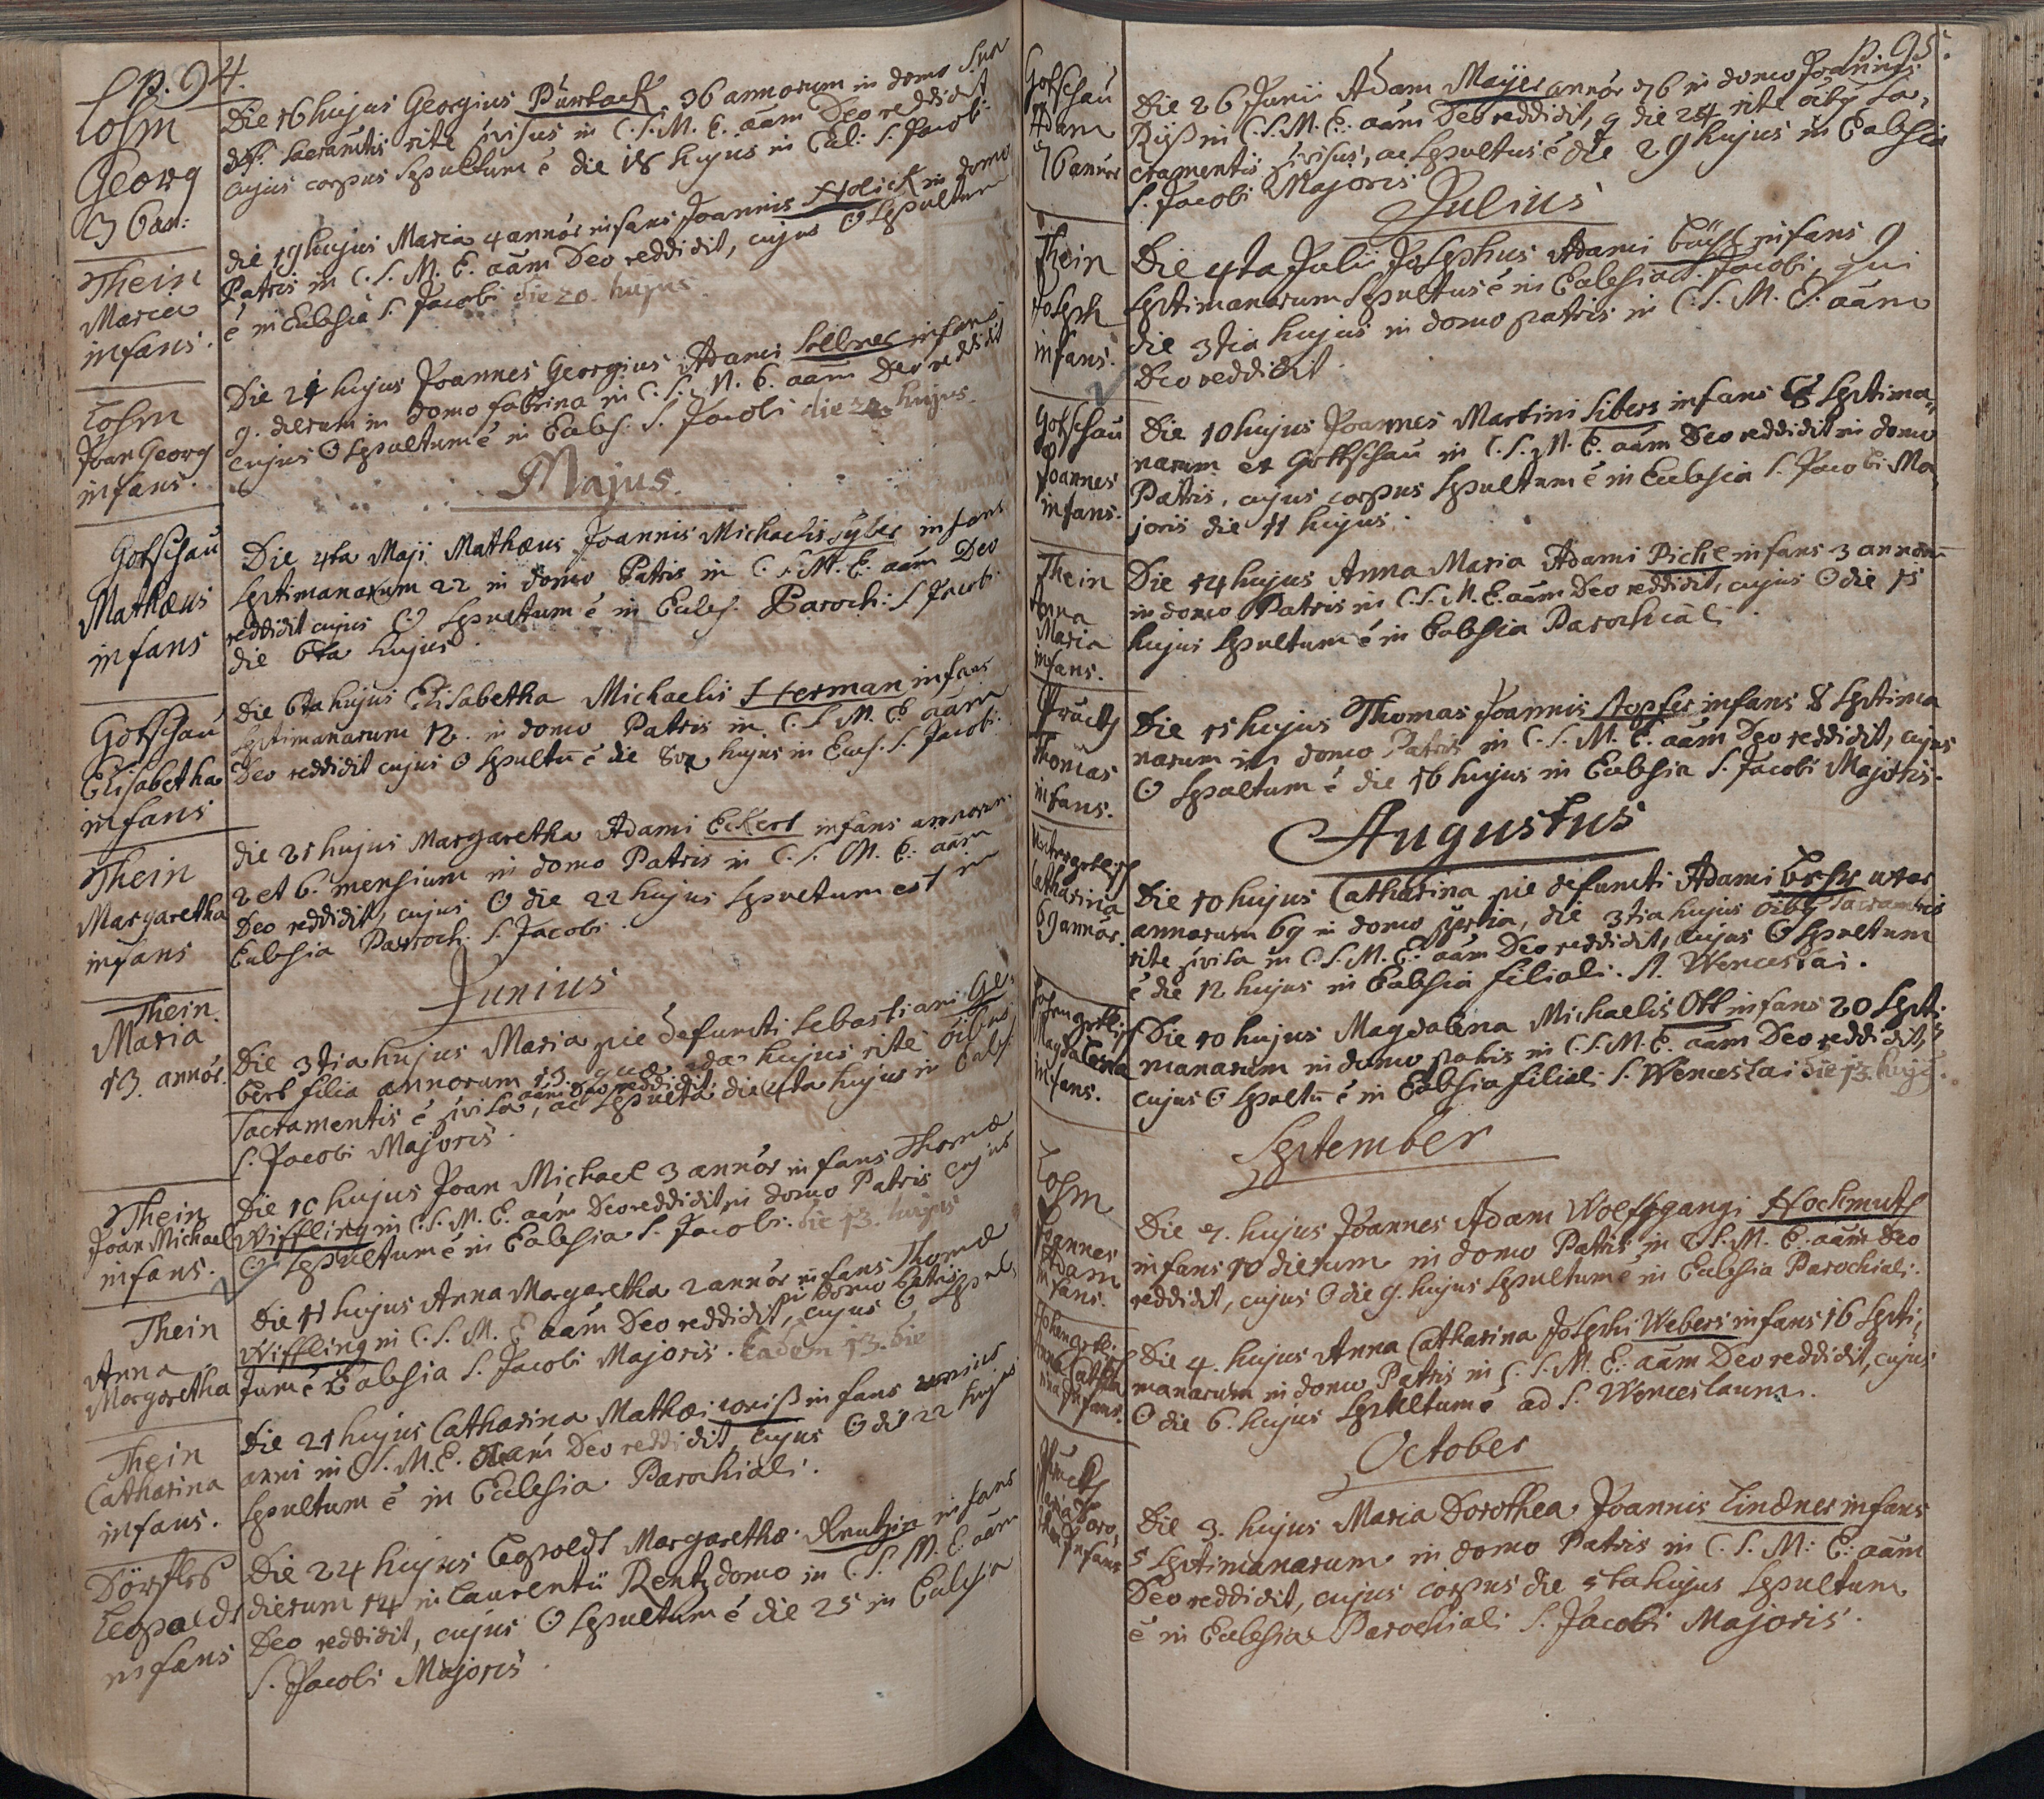 p. 94.
Lohm
Georg
36 an:
Die 16 hujus Georgius Pürback 36 annorum in domo sua
deft. sacramtis rite pvisus in C. S. M. E. aam Deo reddidit
cujus corpus sepultum ē die 18 hujus in Eccl: S. Jacobi
Thein
Maria
infans.
die 19 hujus Maria 4 annor infans Joannis Holick in domo
Patris in C. S. M. E. aam Deo reddidit, cujus O sepultum
ē in Ecclesia S. Jacobi die 20. hujus.
Lohm
Joan Georg
infans.
Die 21 hujus Joannes Georgius Adami Sollner infans
9. dierum in domo fabrina in C. S. M. E. aam Deo reddidit
cujus O sepultum ē in Eccles. S. Jacobi die hujus.
Majus
Gotschau
Mathæus
infans
Die 4ta Maji Mathæus Joannis Michaelis Syler infans
septimanarum 22 in domo Patris in C. S. M. E. aam Deo
reddidit cujus O sepultum ē in Eccles. Paroch: S Jacobi.
die 6ta hujus.
Gotschau
Elisabetha
infans
Die 6ta hujus Elisabetha Michaelis Herman infans
septimanarum 12. in domo Patris in C. S. M. E. aam
Deo reddidit cujus O sepultū ē die 8va hujus in Eccl. S. Jacobi.
Thein
Margaretha
infans
die 21 hujus Margaretha Adami Eckert infans annorum
2 et 6. mensium in domo Patris in C. S. M. E. aam
Deo reddidit, cujus O die 22 hujus sepultum est in
Ecclesia Parroch. S. Jacobi.
Junius
Thein.
Maria
13. annor.
Die 3tia hujus Maria pie defuncti Sebastiani Ge-
bert filia annorum 13 quæ hujus rite oibus
aam Deo reddidit
Sacramentis ē pvisa, ac sepulta die 4ta hujus in Eccles
S. Jacobi Majoris.
Thein
Joan Michael
infans.
Die 10 hujus Joan Michael 3 annor infans Thomæ
Wiffling in C. S. M. E. aam Deo reddidit in domo Patris cujus
O sepultum ē in Ecclesia S. Jacobi. die 13. hujus
Thein
Anna
Margaretha
Die 11 hujus Anna Margaretha 2 annor infans Thomæ
in domo Patris
Wiffling in C. S. M. E. aam Deo reddidit, cujus O sepul
tum ē Ecclesia S. Jacobi Majoris. Eadem 13. die
Thein
Catharina
infans.
Die 21 hujus Catharina Mathæi Woniß infans unius
anni in C. S. M. E. aam Deo reddidit cujus O die 22 hujus
sepultum ē in Ecclesia Parochiali.
Dörfles
Leopoldt
infans
Die 24 hujus Leopoldt Margarethæ Rentzin infans
dierum 14 in Laurentii Rentz domo in C. S. M. E. aam
Deo reddidit, cujus O sepultum ē die 25 in Ecclesia
S. Jacobi Majoris.
p. 95.
Gotschau
Adam
76 annor
Die 26 Junii Adam Mayer annor 76 in domo Joannis
Riß in C. S. M. E. aam Deo reddidit, q die 24 rite oiby Sa-
cramentis pvisus, ac sepultus ē die 29 hujus in Ecclesia
S. Jacobi Majoris.
Julius
Thein
Joseph
infans.
Die 4ta Juli Josephus Adami infans 9
septimanarum sepultus ē in Ecclesia S. Jacobi, qui
die 3tia hujus in domo patris in C. S. M. E. aam
Deo reddidit.
Gotschau
Joannes
infans.
Die 10 hujus Joannes Martini Sibers infans 8 septima-
narum ex Gottschau in C. S. M. E. aam Deo reddidit in domo
Patris, cujus corpus sepultum ē in Ecclesia S. Jacobi Ma-
joris die 11 hujus.
Thein
Anna
Maria
infans.
Die 14 hujus Anna Maria Adami Pichl infans 3 annorū
in domo Patris in C. S. M. E. aam Deo reddidit, cujus O die 15
hujus sepultum ē in Ecclesia Parochiali.
Pruck
Thomas
infans.
Die 15 hujus Thomas Joannis Stopfer infans 8 septima
narum in domo Patris in C. S. M. E. aam Deo reddidit, cujus
O sepultum ē die 16 hujus in Ecclesia S. Jacobi Majoris.
Augustus
Catharina
69 annor.
Die 10 hujus Catharina pie defuncti Adami uxor
annorum 69 in domo ppria, die 3tia hujus oiby sacramtis
rite pvisa in C. S. M. E. aam Deo reddidit, cujus O sepultum
ē die 12 hujus in Ecclesia filiali. S. Wenceslai.
Magdalena
infans.
Die 10 hujus Magdalena Michaelis Ott infans 20 septi-
manarum in domo patris in C. S. M. E. aam Deo reddidit,
cujus O sepultū ē in Ecclesia filiali S. Wenceslai die 13. hujus.
September
Lohm
Joannes
Adam
infans.
Die 7. hujus Joannes Adam Wolffgangi Hochmuth
infans 10 dierum in domo Patris in C. S. M. E. aam Deo
reddidit, cujus O die 9. hujus sepultum ē in Ecclesia Parochiali.
Hohengetli.
Anna Catha
rina Infans.
Die 4. hujus Anna Catharina Josephi Webers infans 16 septi-
manarum in domo Patris in C. S. M. E. aam Deo reddidit, cujus
O die 6. hujus sepultum ē ad S. Wenceslaum.
October
Pruck
Maria Doro,
thea Infans
Die 3. hujus Maria Dorothea Joannis Lindner infans
5 septimanarum in domo Patris in C. S. M: E: aam
Deo reddidit, cujus corpus die 5ta hujus sepultum
ē in Ecclesia Parochiali S. Jacobi Majoris.